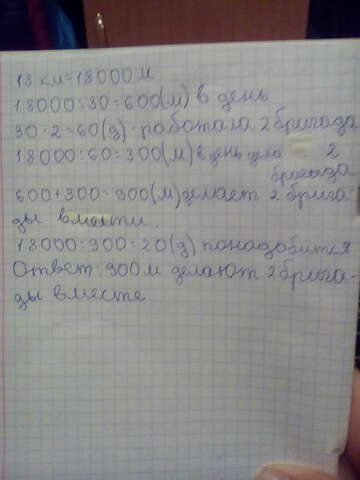 18 км=18000м
18000:30=600(м) в день
30·2=60(д)-работала 2бригада
18000:60=300(м)в день 2
бригада
600+300=900(м)делает 2 брига-
ды вмести.
18000:900=20(д) понадобится
Ответ: 900м делают 2брига-
ды вместе